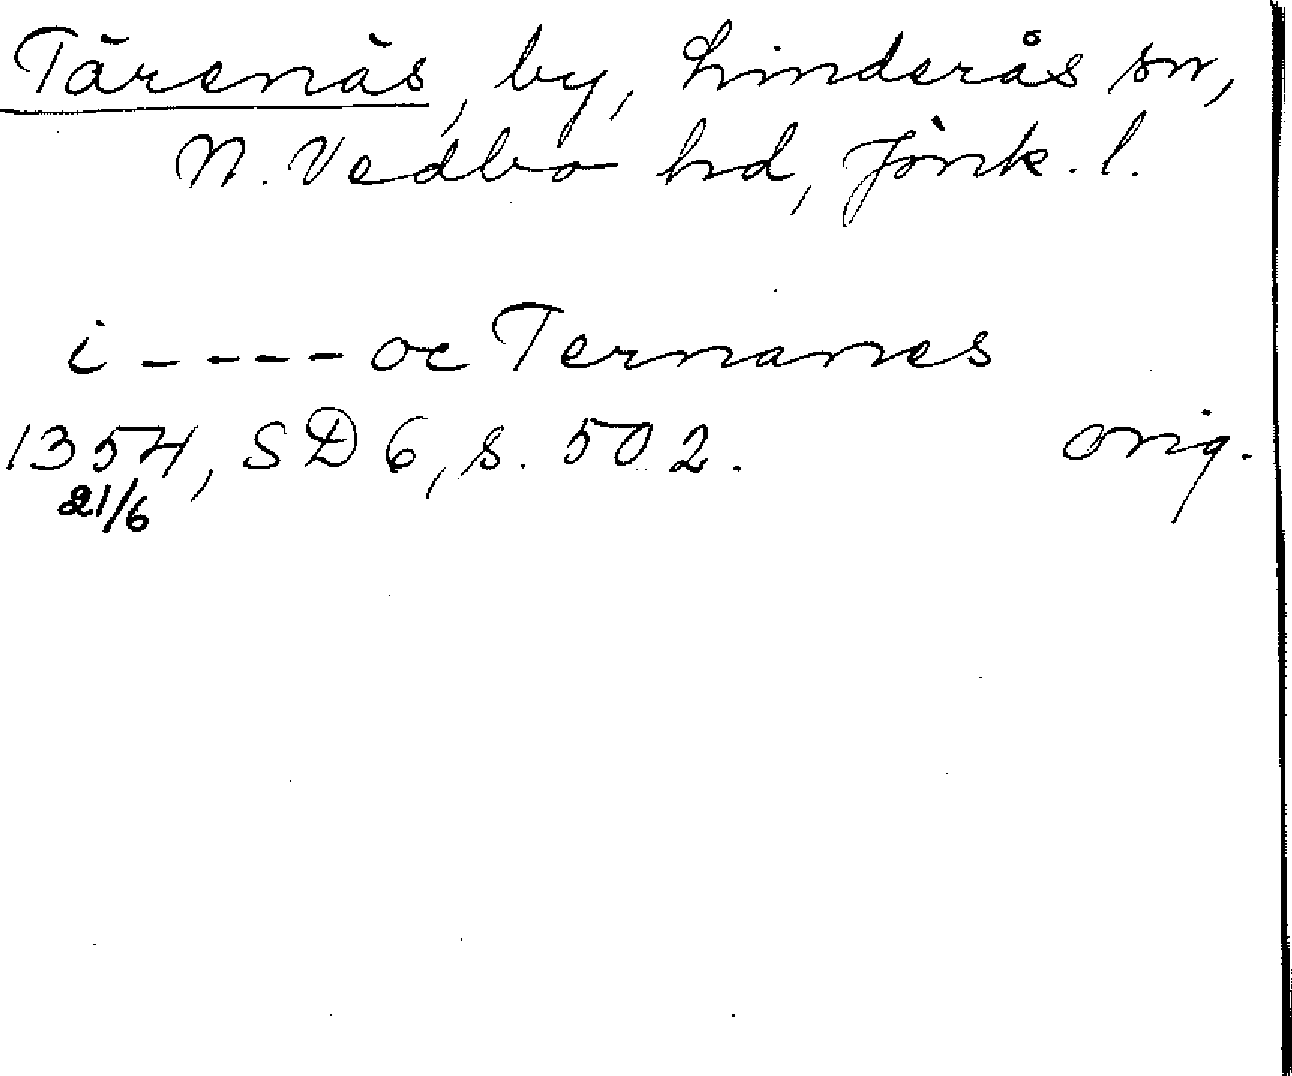 Tärenäs, by, Linderås sn,
N. Vedbo hd, Jönk. l.
i ---- oc Ternanes
1354, SD 6, s. 502. orig.
21/6